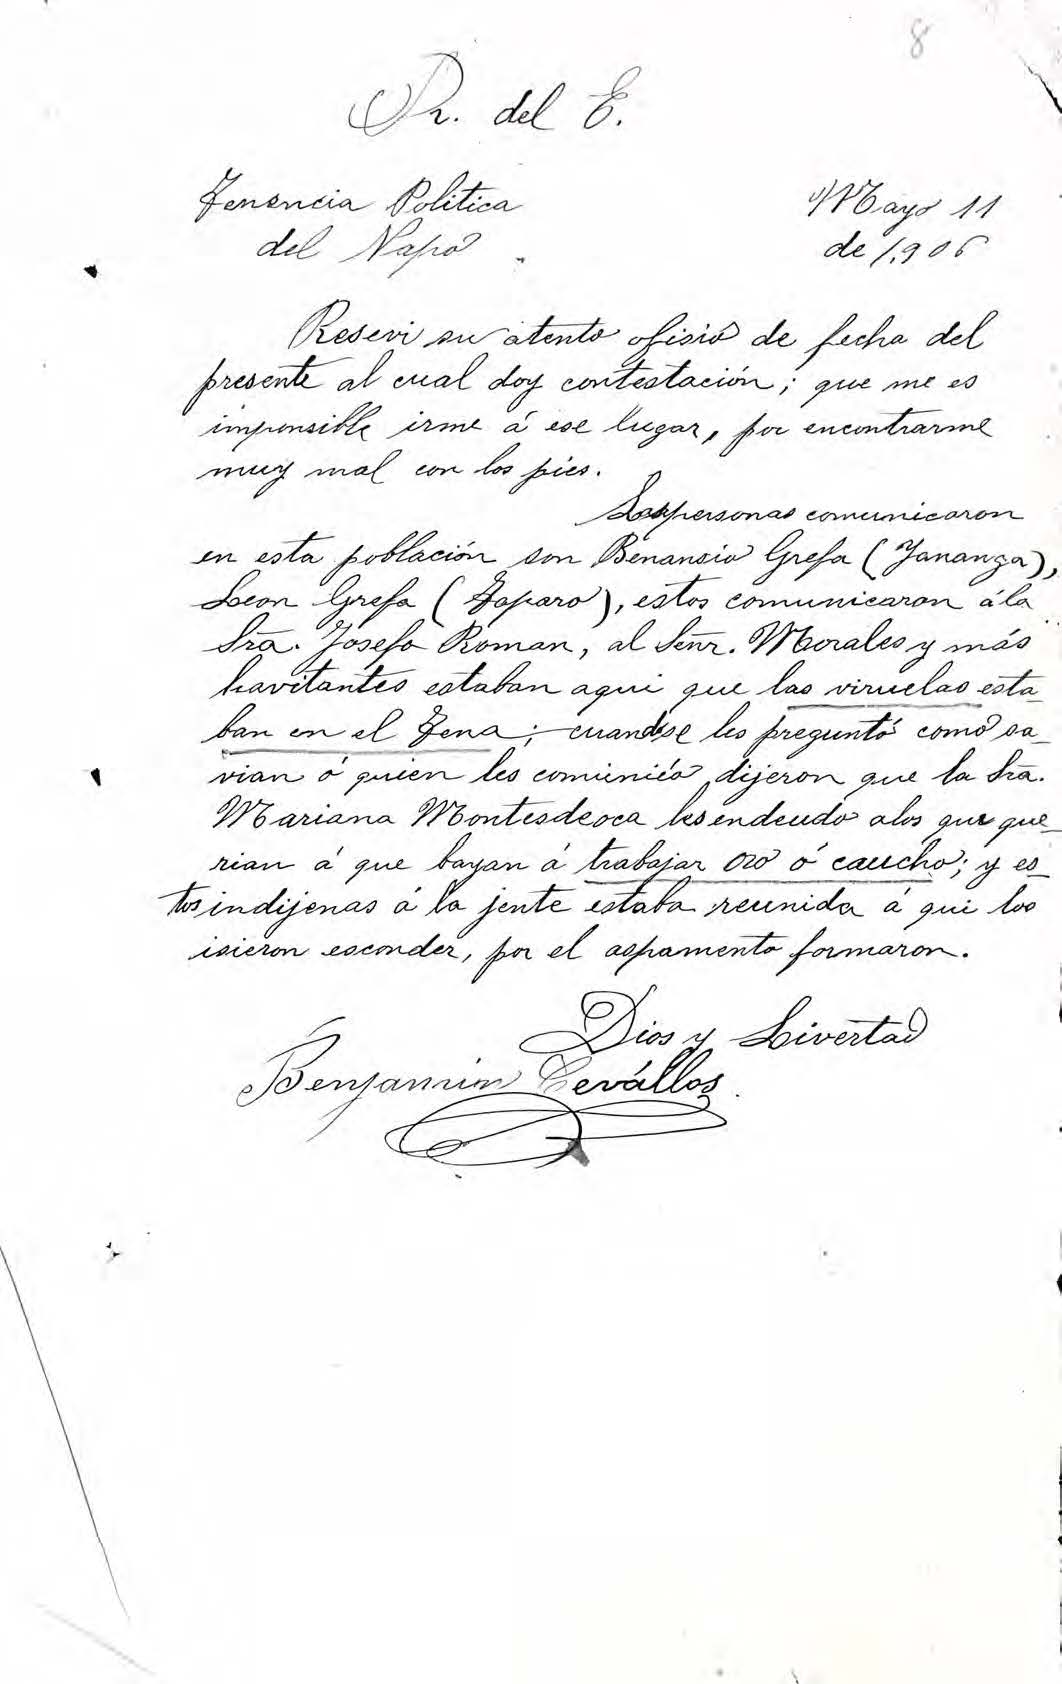 8
R. del E.
Tenencia Politica
Mayo 11
del Napo
de 1,906
Resevi su atento ofisio de fecha del
presente al cual doy contestación; que me es
imponsible irme á ese lugar, por encontrarme
muy mal con los pies.
Las personas comunicaron
en esta población son Benansio Grefa (Yananza),
Leon Grefa (Zaparo), estos comunicaron á la
Sra. Josefa Roman, al Señr. Morales y más
havitantes estaban aqui que las viruelas esta-
ban en el Tena; cuandose les preguntó como sa-
vian ó quien les comunicó dijeron que la Sra.
Mariana Montesdeoca les endeudo a los que que-
rian á que bayan á trabajar oro ó caucho; y es-
tos indijenas á la jente estaba reunida á qui los
isieron esconder, por el aspamento formaron.
Dios y Livertad
Benjamin Cevállos